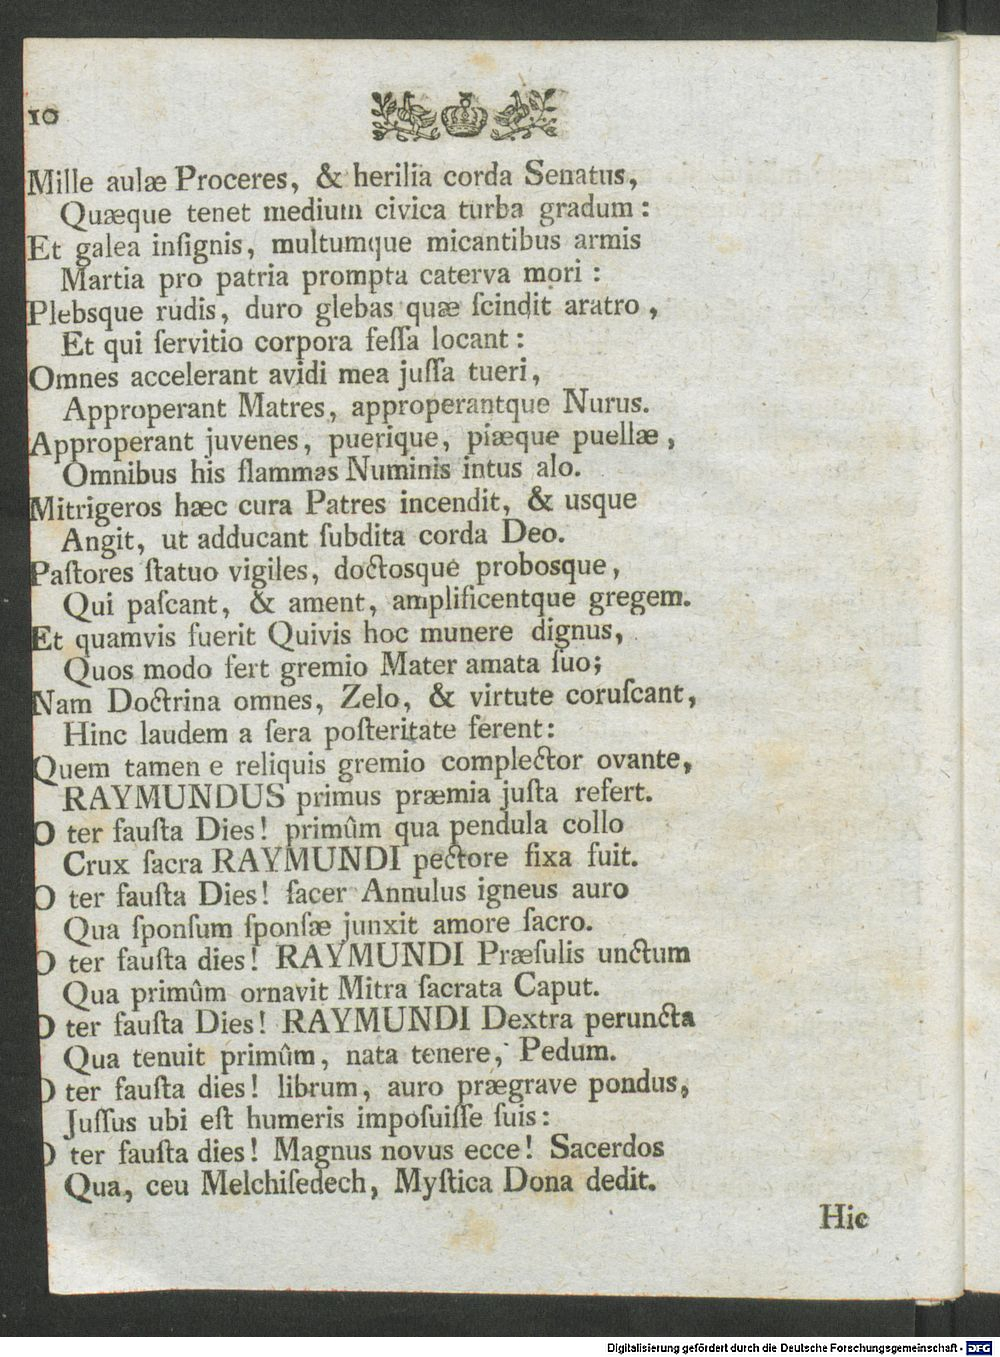 10
Mille aulæ Proceres, & herilia corda Senatus,
Quæque tenet medium civica turba gradum:
Et galea inſignis, multumque micantibus armis
Martia pro patria prompta caterva mori:
Plebsque rudis, duro glebas quæ ſcindit aratro,
Et qui ſervitio corpora feſſa locant:
Omnes accelerant avidi mea juſſa tueri,
Approperant Matres, approperantque Nurus.
Approperant juvenes, puerique, piæque puellæ,
Omnibus his flammas Numinis intus alo.
Mitrigeros hæc cura Patres incendit, & usque
Angit, ut adducant ſubdita corda Deo.
Paſtores ſtatuo vigiles, doctosque probosque,
Qui paſcant, & ament, amplificentque gregem.
Et quamvis fuerit Quivis hoc munere dignus,
Quos modo fert gremio Mater amata ſuo;
Nam Doctrina omnes, Zelo, & virtute coruſcant,
Hinc laudem a ſera poſteritate ferent:
Quem tamen e reliquis gremio complector ovante,
RAYMUNDUS primus præmia juſta refert.
O ter fauſta Dies! primûm qua pendula collo
Crux ſacra RAYMUNDI pectore fixa fuit.
O ter fauſta Dies! ſacer Annulus igneus auro
Qua ſponſum ſponſæ junxit amore ſacro.
O ter fauſta dies! RAYMUNDI Præſulis unctum
Qua primûm ornavit Mitra ſacrata Caput.
O ter fauſta Dies! RAYMUNDI Dextra peruncta
Qua tenuit primûm, nata tenere, Pedum.
O ter fauſta dies! librum, auro prægrave pondus,
Juſſus ubi eſt humeris impoſuiſſe ſuis:
O ter fauſta dies! Magnus novus ecce! Sacerdos
Qua, ceu Melchiſedech, Myſtica Dona dedit.
Hic
Digitalisierung gefördert durch die Deutsche Forschungsgemeinschaft - DFG